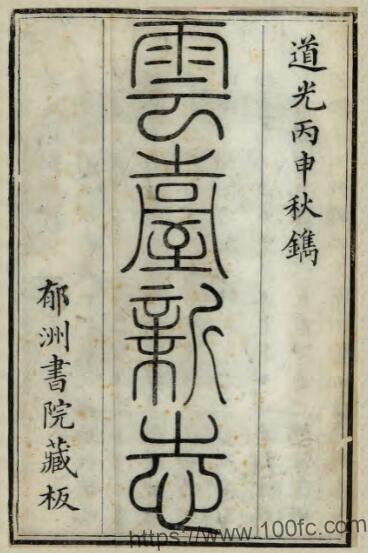 道光丙申秋鐫
雲臺新志
郁洲書院藏板
https://www.100fc.com